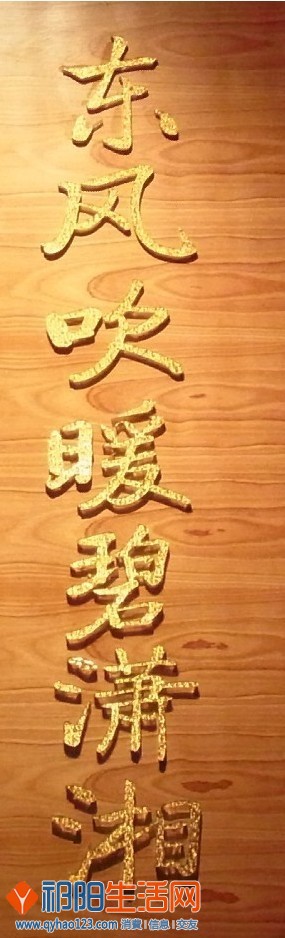 东风吹暖碧潇湘
祁阳生活网
www.qyhao123.com 消费 | 信息 | 交友